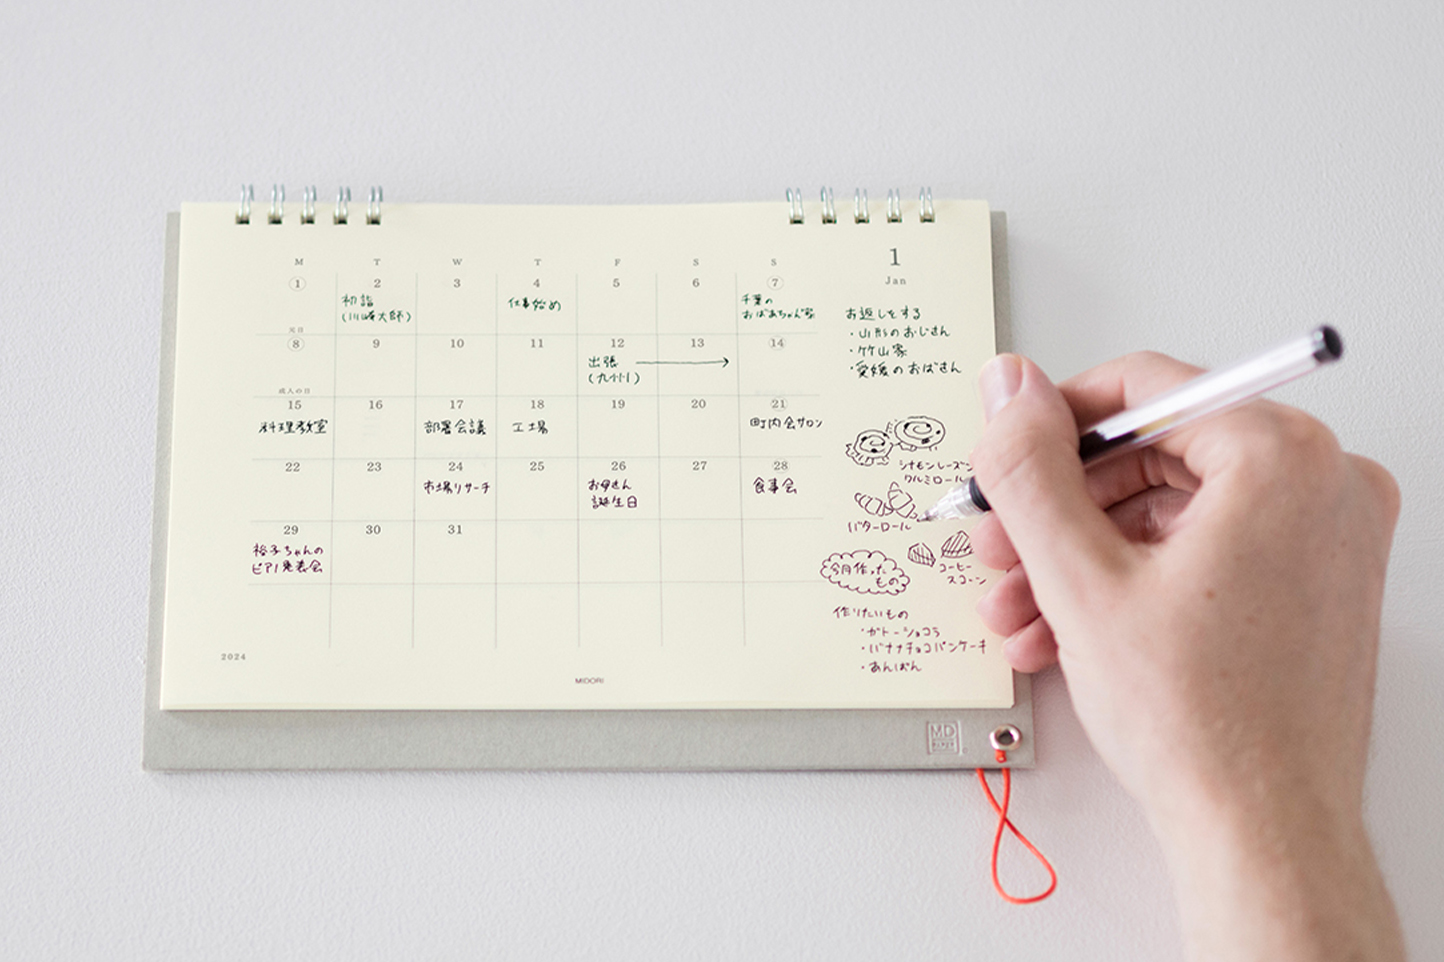 1
Jan
M T W T F S S
1 2 3 4 5 6 7
初詣
(川崎大師)
仕事始め
千葉の
おばあちゃん家
元日
8 9 10 11 12 13 14
出張
(九州)
成人の日
15 16 17 18 19 20 21
料理教室
部署会議
工場
町内会サロン
22 23 24 25 26 27 28
市場リサーチ
お母さん
誕生日
食事会
29 30 31
裕子ちゃんの
ピアノ発表会
お返しをする
・山形のおじさん
・竹山家
・愛媛のおばさん
シナモンレーズン
クルミロール
バターロール
今月作った
もの
コーヒー
スコーン
作りたいもの
・ガトーショコラ
・バナナチョコパンケーキ
・あんぱん
2024
MIDORI
MD